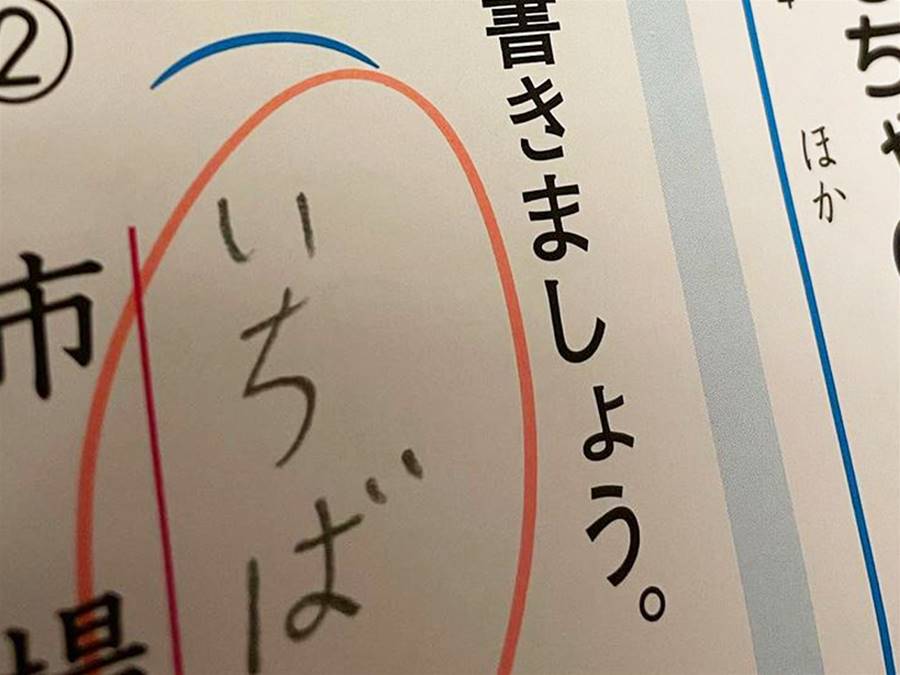 ほか
書きましょう。
いちば
市場
②